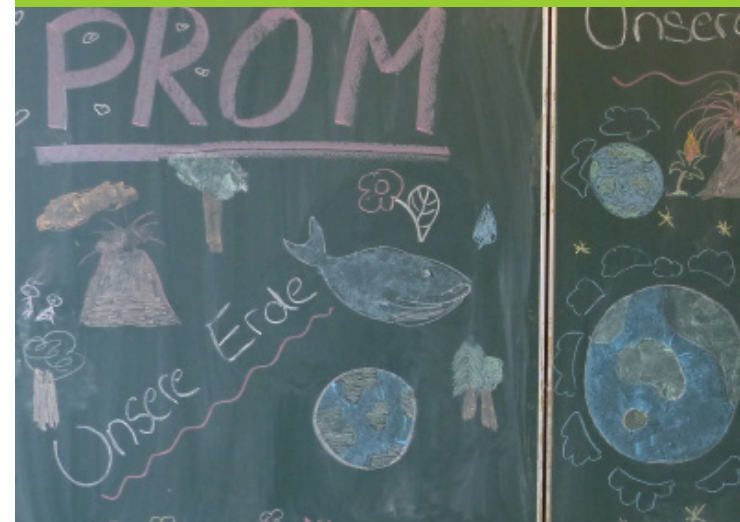 PROM
Unsere Erde
Unsere